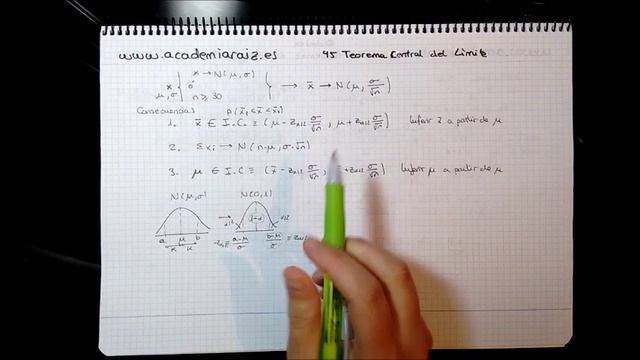 www.academiaraiz.es 45 Teorema Central del Límite
x → N(μ, σ)
x μ, σ { ó } → x̄ → N(μ, σ/√n)
n ≥ 30
Consecuencias p(x̄₁ < x̄ < x̄₂)
1. x̄ ∈ I.C. ≡ (μ - Zα/2 σ/√n, μ + Zα/2 σ/√n) Inferir x̄ a partir de μ
2. Σxi → N(n·μ, σ·√n)
3. μ ∈ I.C ≡ (x̄ - Zα/2 σ/√n, x̄ + Zα/2 σ/√n) Inferir μ a partir de
N(μ, σ) N(0, 1)
α/2 1-α α/2
a μ b
K K
a-μ/σ b-μ/σ